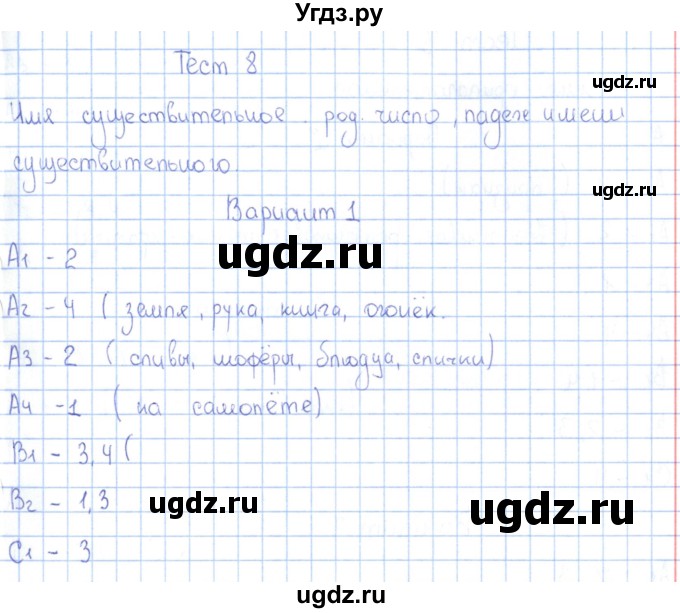 Угдз.ру
Тест 8
ugdz.ru
Имя существительное. род. число, падеж имени
существительного.
ugdz.ru
Вариант 1
ugdz.ru
А1 - 2
А2 - 4 ( земля, рука, книга, огонёк.
А3 - 2 ( сливы, шофёры, блюдца, спички)
А4 - 1 ( на самолёте)
В1 - 3,4 (
В2 - 1,3
ugdz.ru
ugdz.ru
С1 - 3
ugdz.ru